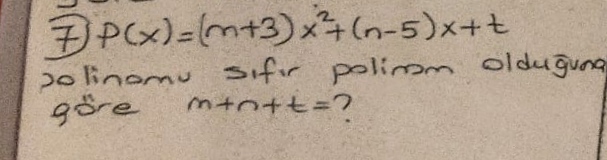 7) P(x)=(m+3)x²+(n-5)x+t
polinomu sıfır polinom olduğuna
göre m+n+t=?